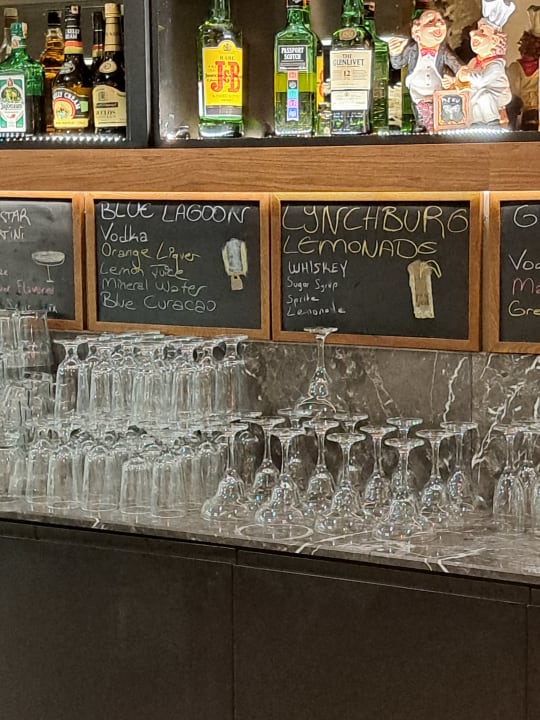 RARE
J&B
PASSPORT
SCOTCH
THE
GLENLIVET
12
STAR
TINI
Flavored
BLUE LAGOON
Vodka
Orange Liquer
Lemon Juice
Mineral Water
Blue Curacao
LYNCHBURG
LEMONADE
WHISKEY
Sugar Syrup
Sprite
Lemonade
G
Vod
Ma
Gre